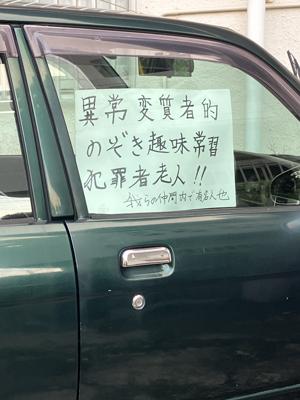 異常変質者的
のぞき趣味常習
犯罪者老人!!
らの仲間内で有名人也